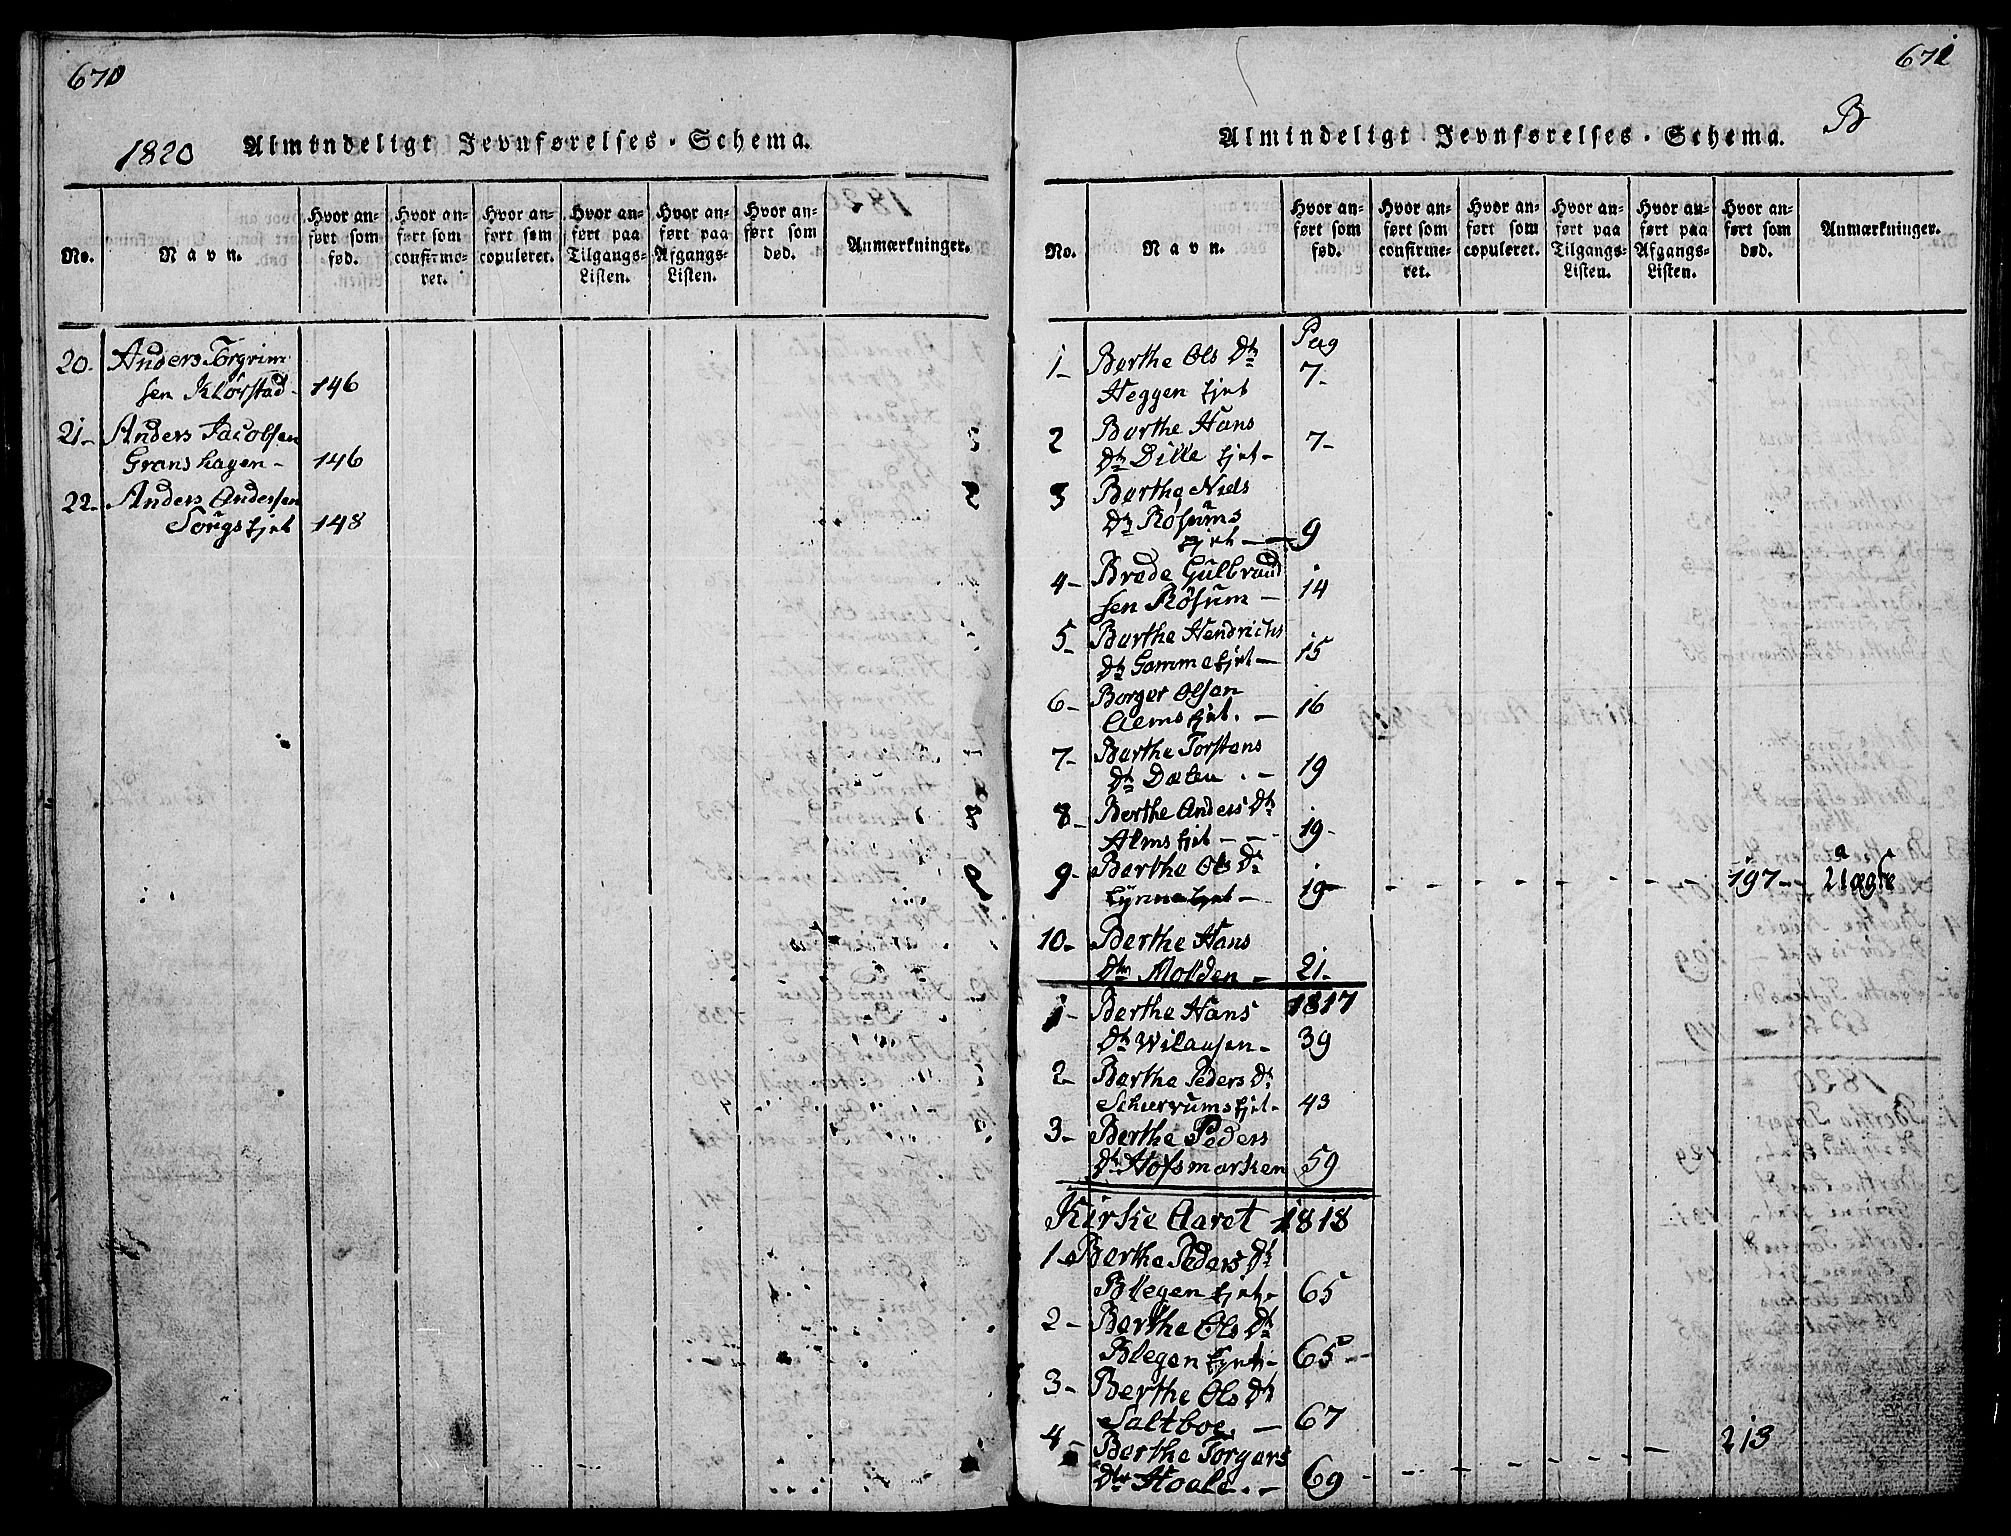 670
1820 Almindeligt Jevnførelses-Schema.
No.
Navn.
Hvor an-
ført som
fød.
Hvor an-
ført som
confirme-
ret.
Hvor an-
ført som
copuleret.
Hvor an-
ført paa
Tilgangs-
Listen.
Hvor an-
ført paa
Afgangs-
Listen.
Hvor an-
ført som
død.
Anmærkninger.
20. Anders Torgrim
sen Klørstad - 146
21- Anders Jacobsen
Granshagen - 146
22- Anders Andersen
148
671
B
Almindeligt Jevnførelses-Schema.
No.
Navn.
Hvor an-
ført som
fød.
Hvor an-
ført som
confirme-
ret.
Hvor an-
ført som
copuleret.
Hvor an-
ført paa
Tilgangs-
Listen.
Hvor an-
ført paa
Afgangs-
Listen.
Hvor an-
ført som
død.
Anmærkninger.
Pag
1- Berthe Ols Dtr
Heggen Ejet 7-
2 Berthe Hans
Dtr Dille Ejet- 7-
3 Berthe Niels
Dtr Røsums
Ejet - 9
4- Brede Gulbrand
sen Røsum - 14
5- Berthe Hendrichs
Dtr Gamme Ejet - 15
6- Borger Olsen
Aems Ejet. - 16
7- Berthe Torstens
Dtr Dælen . - 19
8- Berthe Anders Dtr
Alms Ejet - - 19-
9- Berthe Ols Dtr
Lynne Ejet - 19- 197- Uægte
10- Berthe Hans
Dtr Molden - 21-
1- Berthe Hans 1817
Dtr - 39
2- Berthe Peders Dtr
Schurrums Ejet- 43
3- Berthe Peders
Dtr Hofsmarken 59
Kirke Aaret 1818
1- Berthe Peders Dtr
Blegen Ejet- 65
2- Berthe Ols Dtr
Blegen Ejet- 65-
3- Berthe Ols Dtr
Saltboe. - 67
4- Berthe Torgers
Dtr Hoale. - 69 - 213